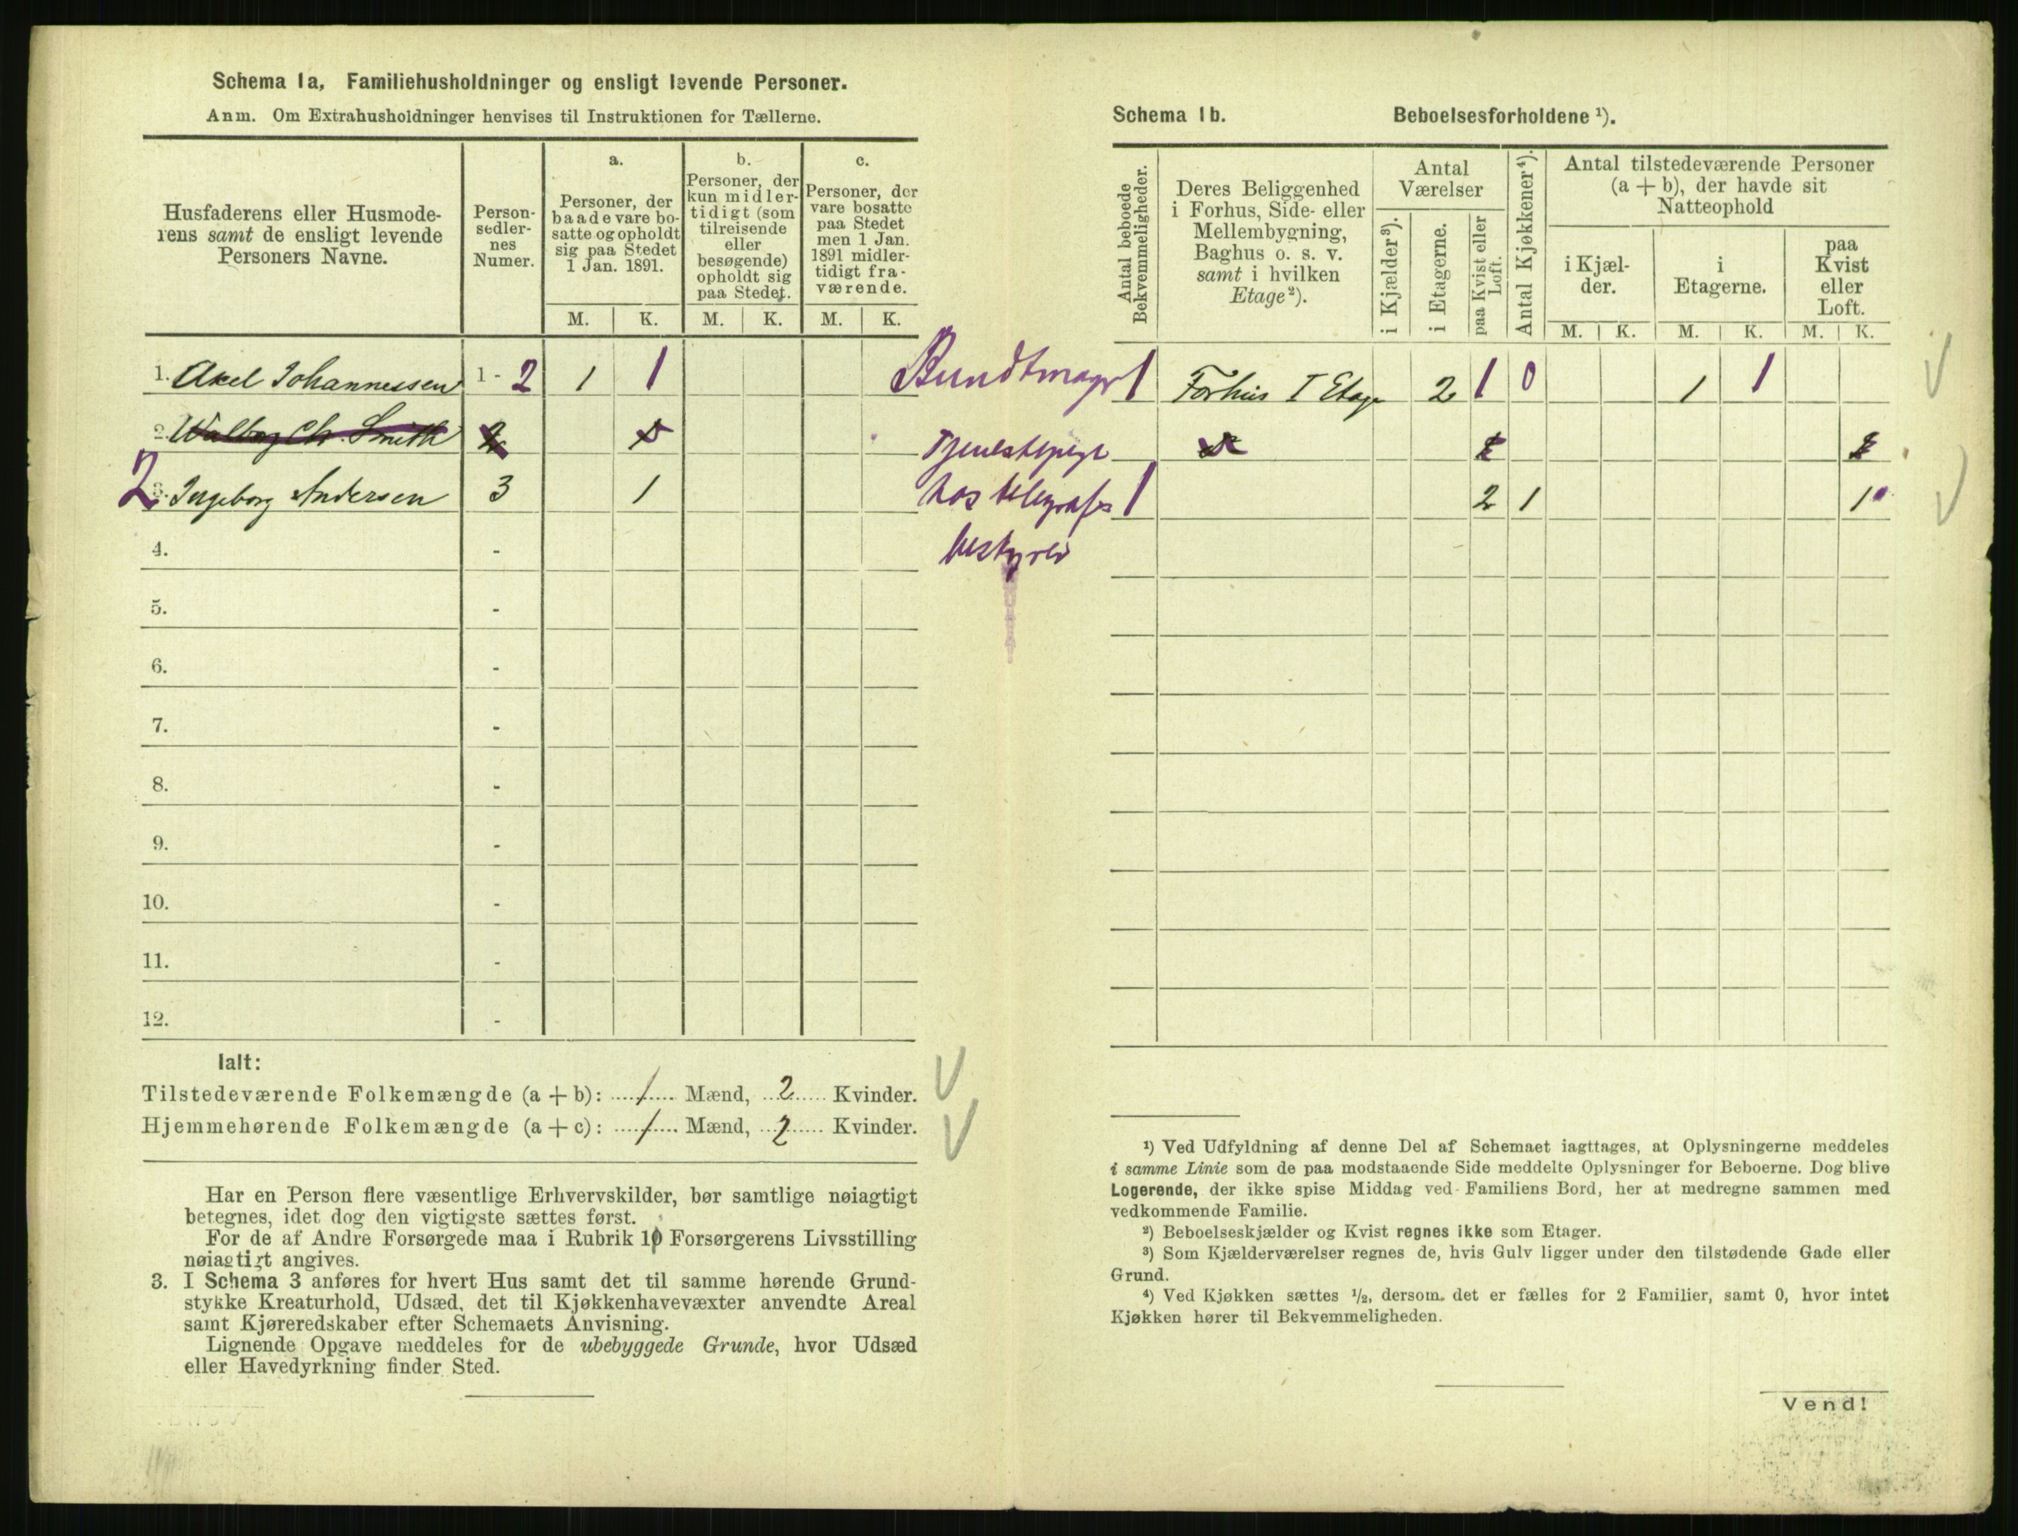 Schema 1a, Familiehusholdninger og ensligt levende Personer.
Anm. Om Extrahusholdninger henvises til Instruktionen for Tællerne.
Husfaderens eller Husmode-
rens samt de ensligt levende
Personers Navne.
Person-
sedler-
nes
Numer.
a.
Personer, der
baade vare bo-
satte og opholdt
sig paa Stedet
1 Jan. 1891.
b.
Personer, der
kun midler-
tidigt (som
tilreisende
eller
besøgende)
opholdt sig
paa Stedet.
c.
Personer, der
vare bosatte
paa Stedet
men 1 Jan.
1891 midler-
tidigt fra-
værende.
M. K. M. K. M. K.
1. Axel Johannessen 1 - 2 1 1
2. Walborg Ch. Smith 2
2 3. Ingeborg Andersen 3 1
4. -
5. -
6. -
7. -
8. -
9. -
10. -
11. -
12. -
Ialt:
Tilstedeværende Folkemængde (a + b): 1 Mænd, 2 Kvinder.
Hjemmehørende Folkemængde (a + c): 1 Mænd, 2 Kvinder.
Har en Person flere væsentlige Erhvervskilder, bør samtlige nøiagtigt
betegnes, idet dog den vigtigste sættes først.
For de af Andre Forsørgede maa i Rubrik 10 Forsørgerens Livsstilling
nøiagtigt angives.
3. I Schema 3 anføres for hvert Hus samt det til samme hørende Grund-
stykke Kreaturhold, Udsæd, det til Kjøkkenhavevæxter anvendte Areal
samt Kjøreredskaber efter Schemaets Anvisning.
Lignende Opgave meddeles for de ubebyggede Grunde, hvor Udsæd
eller Havedyrkning finder Sted.
Schema 1b. Beboelsesforholdene ¹).
Antal beboede
Bekvemmeligheder.
Deres Beliggenhed
i Forhus, Side- eller
Mellembygning,
Baghus o. s. v.
samt i hvilken
Etage²).
Antal
Værelser
i Kjælder³).
i Etagerne.
paa Kvist eller
Loft.
Antal Kjøkkener⁴).
Antal tilstedeværende Personer
(a + b), der havde sit
Natteophold
i Kjæl-
der.
i
Etagerne.
paa
Kvist
eller
Loft.
M. K. M. K. M. K.
Bundtmager 1 Forhus I Etage 2 1 0 1 1
Tjenestepige
hos telegraf 1 2 1 1
bestyrer
¹) Ved Udfyldning af denne Del af Schemaet iagttages, at Oplysningerne meddeles
i samme Linie som de paa modstaaende Side meddelte Oplysninger for Beboerne. Dog blive
Logerende, der ikke spise Middag ved Familiens Bord, her at medregne sammen med
vedkommende Familie.
²) Beboelseskjælder og Kvist regnes ikke som Etager.
³) Som Kjælderværelser regnes de, hvis Gulv ligger under den tilstødende Gade eller
Grund.
⁴) Ved Kjøkken sættes ½, dersom det er fælles for 2 Familier, samt 0, hvor intet
Kjøkken hører til Bekvemmeligheden.
Vend!